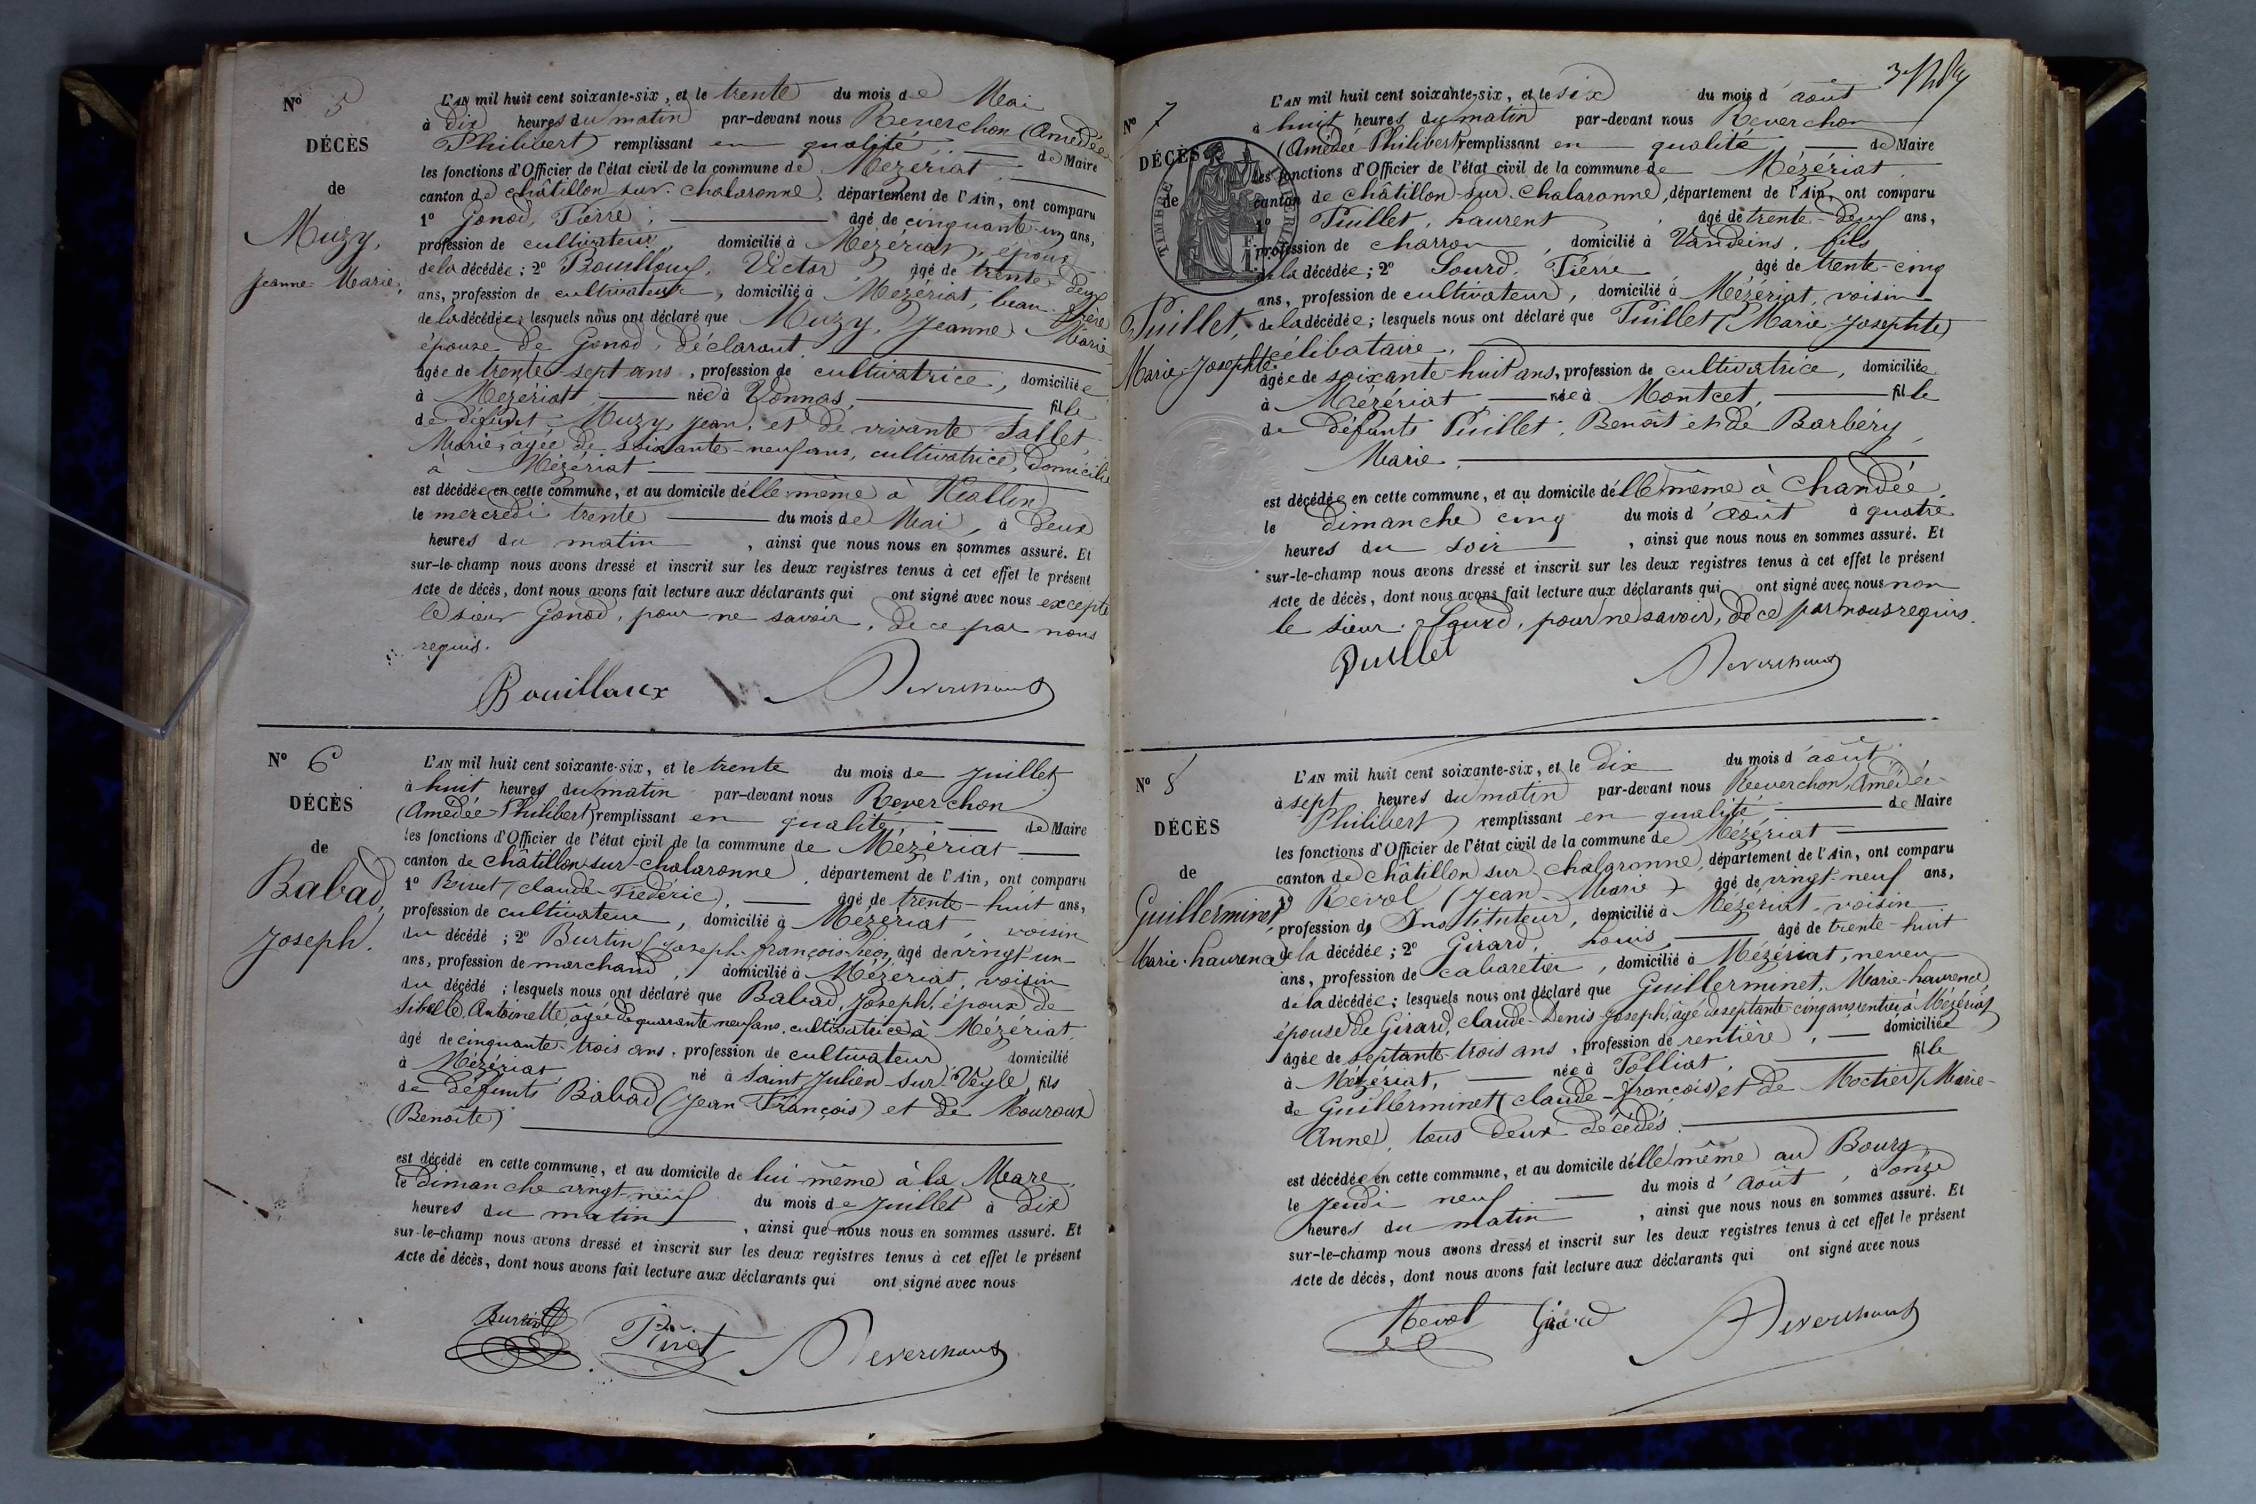 N° 5
DÉCÈS
de
Muzy,
Jeanne-Marie,
L'AN mil huit cent soixante-six, et le trente du mois de Mai
à dix heures du matin par-devant nous Reverchon (Amédée
Philibert) remplissant en qualité de Maire
les fonctions d'Officier de l'état civil de la commune de Mézériat
canton de Châtillon-sur-Chalaronne, département de l'Ain, ont comparu
1° Gonod, Pierre, âgé de cinquante-un ans,
profession de cultivateur, domicilié à Mézériat, époux
de la décédée; 2° Bouilloux, Victor, âgé de trente-deux
ans, profession de cultivateur, domicilié à Mézériat, beau-frère
de la décédée; lesquels nous ont déclaré que Muzy, Jeanne Marie
épouse de Gonod, déclarant,
âgée de trente-sept ans, profession de cultivatrice, domiciliée
à Mézériat née à Vonnas, fille
de défunt Muzy, Jean, et de vivante Sallet,
Marie, âgée de soixante-neuf ans, cultivatrice, domiciliée
à Mézériat
est décédée en cette commune, et au domicile d'elle même à
le mercredi trente du mois de Mai, à deux
heures du matin, ainsi que nous nous en sommes assuré. Et
sur-le-champ nous avons dressé et inscrit sur les deux registres tenus à cet effet le présent
Acte de décès, dont nous avons fait lecture aux déclarants qui ont signé avec nous excepté
le sieur Gonod, pour ne savoir, de ce par nous
requis.
Bouilloux Reverchon
N° 6
DÉCÈS
de
Babad,
Joseph.
L'AN mil huit cent soixante-six, et le trente du mois de Juillet
à huit heures du matin par-devant nous Reverchon
(Amédée-Philibert) remplissant en qualité de Maire
les fonctions d'Officier de l'état civil de la commune de Mézériat
canton de Châtillon-sur-Chalaronne, département de l'Ain, ont comparu
1° (Claude-Frédéric), âgé de trente-huit ans,
profession de cultivateur, domicilié à Mézériat, voisin
du décédé; 2° Burtin (Joseph-François-Léon), âgé de vingt-un
ans, profession de marchand, domicilié à Mézériat, voisin
du décédé; lesquels nous ont déclaré que Babad, Joseph, époux de
Sibelle, Antoinette, âgée de quarante-neuf ans, cultivatrice à Mézériat,
âgé de cinquante-trois ans, profession de cultivateur domicilié
à Mézériat né à Saint-Julien-sur-Veyle, fils
de défunts Babad (Jean-François) et de Mouroux
(Benoîte)
est décédé en cette commune, et au domicile de lui-même à la Mare,
le dimanche vingt-neuf du mois de Juillet à dix
heures du matin, ainsi que nous nous en sommes assuré. Et
sur-le-champ nous avons dressé et inscrit sur les deux registres tenus à cet effet le présent
Acte de décès, dont nous avons fait lecture aux déclarants qui ont signé avec nous
Burtin Reverchon
N° 7
DÉCÈS
de
TIMBRE
Puillet,
Marie-Josephte
L'AN mil huit cent soixante-six, et le six du mois d'août
à huit heures du matin par-devant nous Reverchon
(Amédée-Philibert) remplissant en qualité de Maire
les fonctions d'Officier de l'état civil de la commune de Mézériat
canton de Châtillon-sur-Chalaronne, département de l'Ain, ont comparu
1° Puillet, Laurent, âgé de trente-deux ans,
profession de charron, domicilié à Vandeins, fils
de la décédée; 2° Sourd, Pierre âgé de trente-cinq
ans, profession de cultivateur, domicilié à Mézériat, voisin
de la décédée; lesquels nous ont déclaré que Puillet (Marie-Josephte)
célibataire,
âgée de soixante-huit ans, profession de cultivatrice, domiciliée
à Mézériat née à Montcet, fille
de défunts Puillet, Benoît et de Barbéry,
Marie,
est décédée en cette commune, et au domicile d'elle même à Chandée,
le dimanche cinq du mois d'août à quatre
heures du soir, ainsi que nous nous en sommes assuré. Et
sur-le-champ nous avons dressé et inscrit sur les deux registres tenus à cet effet le présent
Acte de décès, dont nous avons fait lecture aux déclarants qui ont signé avec nous non
le sieur Sourd, pour ne savoir, de ce par nous requis.
Puillet Reverchon
N° 8
DÉCÈS
de
Guillerminet,
Marie-Laurence
L'AN mil huit cent soixante-six, et le dix du mois d'août
à sept heures du matin par-devant nous Reverchon, Amédée-
Philibert, remplissant en qualité de Maire
les fonctions d'Officier de l'état civil de la commune de Mézériat
canton de Châtillon sur Chalaronne, département de l'Ain, ont comparu
1° Revol (Jean-Marie) âgé de vingt-neuf ans,
profession de Instituteur, domicilié à Mézériat, voisin
de la décédée; 2° Girard, Louis, âgé de trente-huit
ans, profession de cabaretier, domicilié à Mézériat, neveu
de la décédée; lesquels nous ont déclaré que Guillerminet, Marie-Laurence,
épouse de Girard, Claude-Denis-Joseph, âgé de septante-cinq ans rentier à Mézériat
âgée de septante-trois ans, profession de rentière, domiciliée
à Mézériat, née à Polliat, fille
de Guillerminet (Claude-François) et de Mochet (Marie-
Anne), tous deux décédés.
est décédée en cette commune, et au domicile d'elle même au Bourg
le Jeudi neuf du mois d'août, à onze
heures du matin, ainsi que nous nous en sommes assuré. Et
sur-le-champ nous avons dressé et inscrit sur les deux registres tenus à cet effet le présent
Acte de décès, dont nous avons fait lecture aux déclarants qui ont signé avec nous
Revol Girard Reverchon